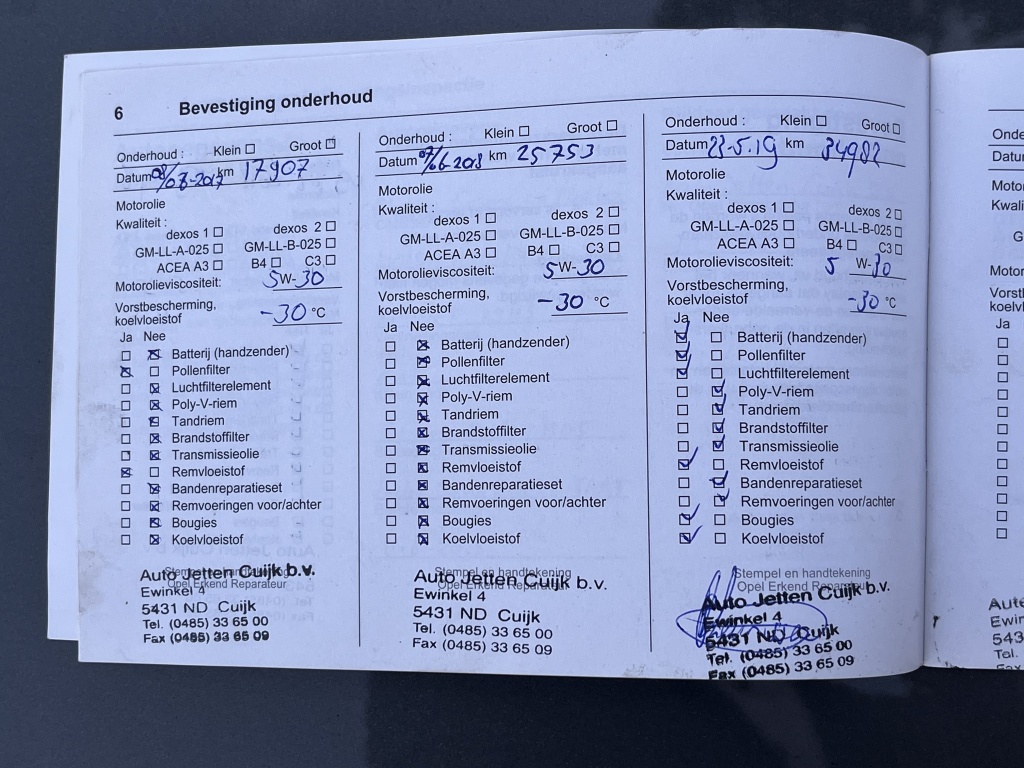 6 Bevestiging onderhoud
Onderhoud : Klein Groot
Datum 08/08-2017 km 17907
Motorolie
Kwaliteit :
dexos 1 dexos 2
GM-LL-A-025 GM-LL-B-025
ACEA A3 B4 C3
Motorolieviscositeit: 5W-30
Vorstbescherming,
koelvloeistof -30 °C
Ja Nee
Batterij (handzender)
Pollenfilter
Luchtfilterelement
Poly-V-riem
Tandriem
Brandstoffilter
Transmissieolie
Remvloeistof
Bandenreparatieset
Remvoeringen voor/achter
Bougies
Koelvloeistof
Stempel en handtekening
Opel Erkend Reparateur
Auto Jetten Cuijk b.v.
Ewinkel 4
5431 ND Cuijk
Tel. (0485) 33 65 00
Fax (0485) 33 65 09
Onderhoud : Klein Groot
Datum 07/6-2018 km 25753
Motorolie
Kwaliteit :
dexos 1 dexos 2
GM-LL-A-025 GM-LL-B-025
ACEA A3 B4 C3
Motorolieviscositeit: 5W-30
Vorstbescherming,
koelvloeistof -30 °C
Ja Nee
Batterij (handzender)
Pollenfilter
Luchtfilterelement
Poly-V-riem
Tandriem
Brandstoffilter
Transmissieolie
Remvloeistof
Bandenreparatieset
Remvoeringen voor/achter
Bougies
Koelvloeistof
Stempel en handtekening
Opel Erkend Reparateur
Auto Jetten Cuijk b.v.
Ewinkel 4
5431 ND Cuijk
Tel. (0485) 33 65 00
Fax (0485) 33 65 09
Onderhoud : Klein Groot
Datum 23-5.19 km 34982
Motorolie
Kwaliteit :
dexos 1 dexos 2
GM-LL-A-025 GM-LL-B-025
ACEA A3 B4 C3
Motorolieviscositeit: 5 W-30
Vorstbescherming,
koelvloeistof -30 °C
Ja Nee
Batterij (handzender)
Pollenfilter
Luchtfilterelement
Poly-V-riem
Tandriem
Brandstoffilter
Transmissieolie
Remvloeistof
Bandenreparatieset
Remvoeringen voor/achter
Bougies
Koelvloeistof
Stempel en handtekening
Opel Erkend Reparateur
Auto Jetten Cuijk b.v.
Ewinkel 4
5431 ND Cuijk
Tel. (0485) 33 65 00
Fax (0485) 33 65 09